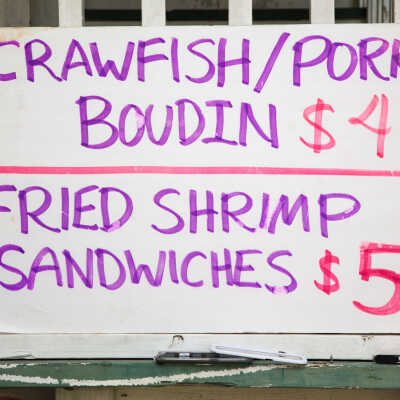 CRAWFISH/PORK
BOUDIN $4
FRIED SHRIMP
SANDWICHES $5